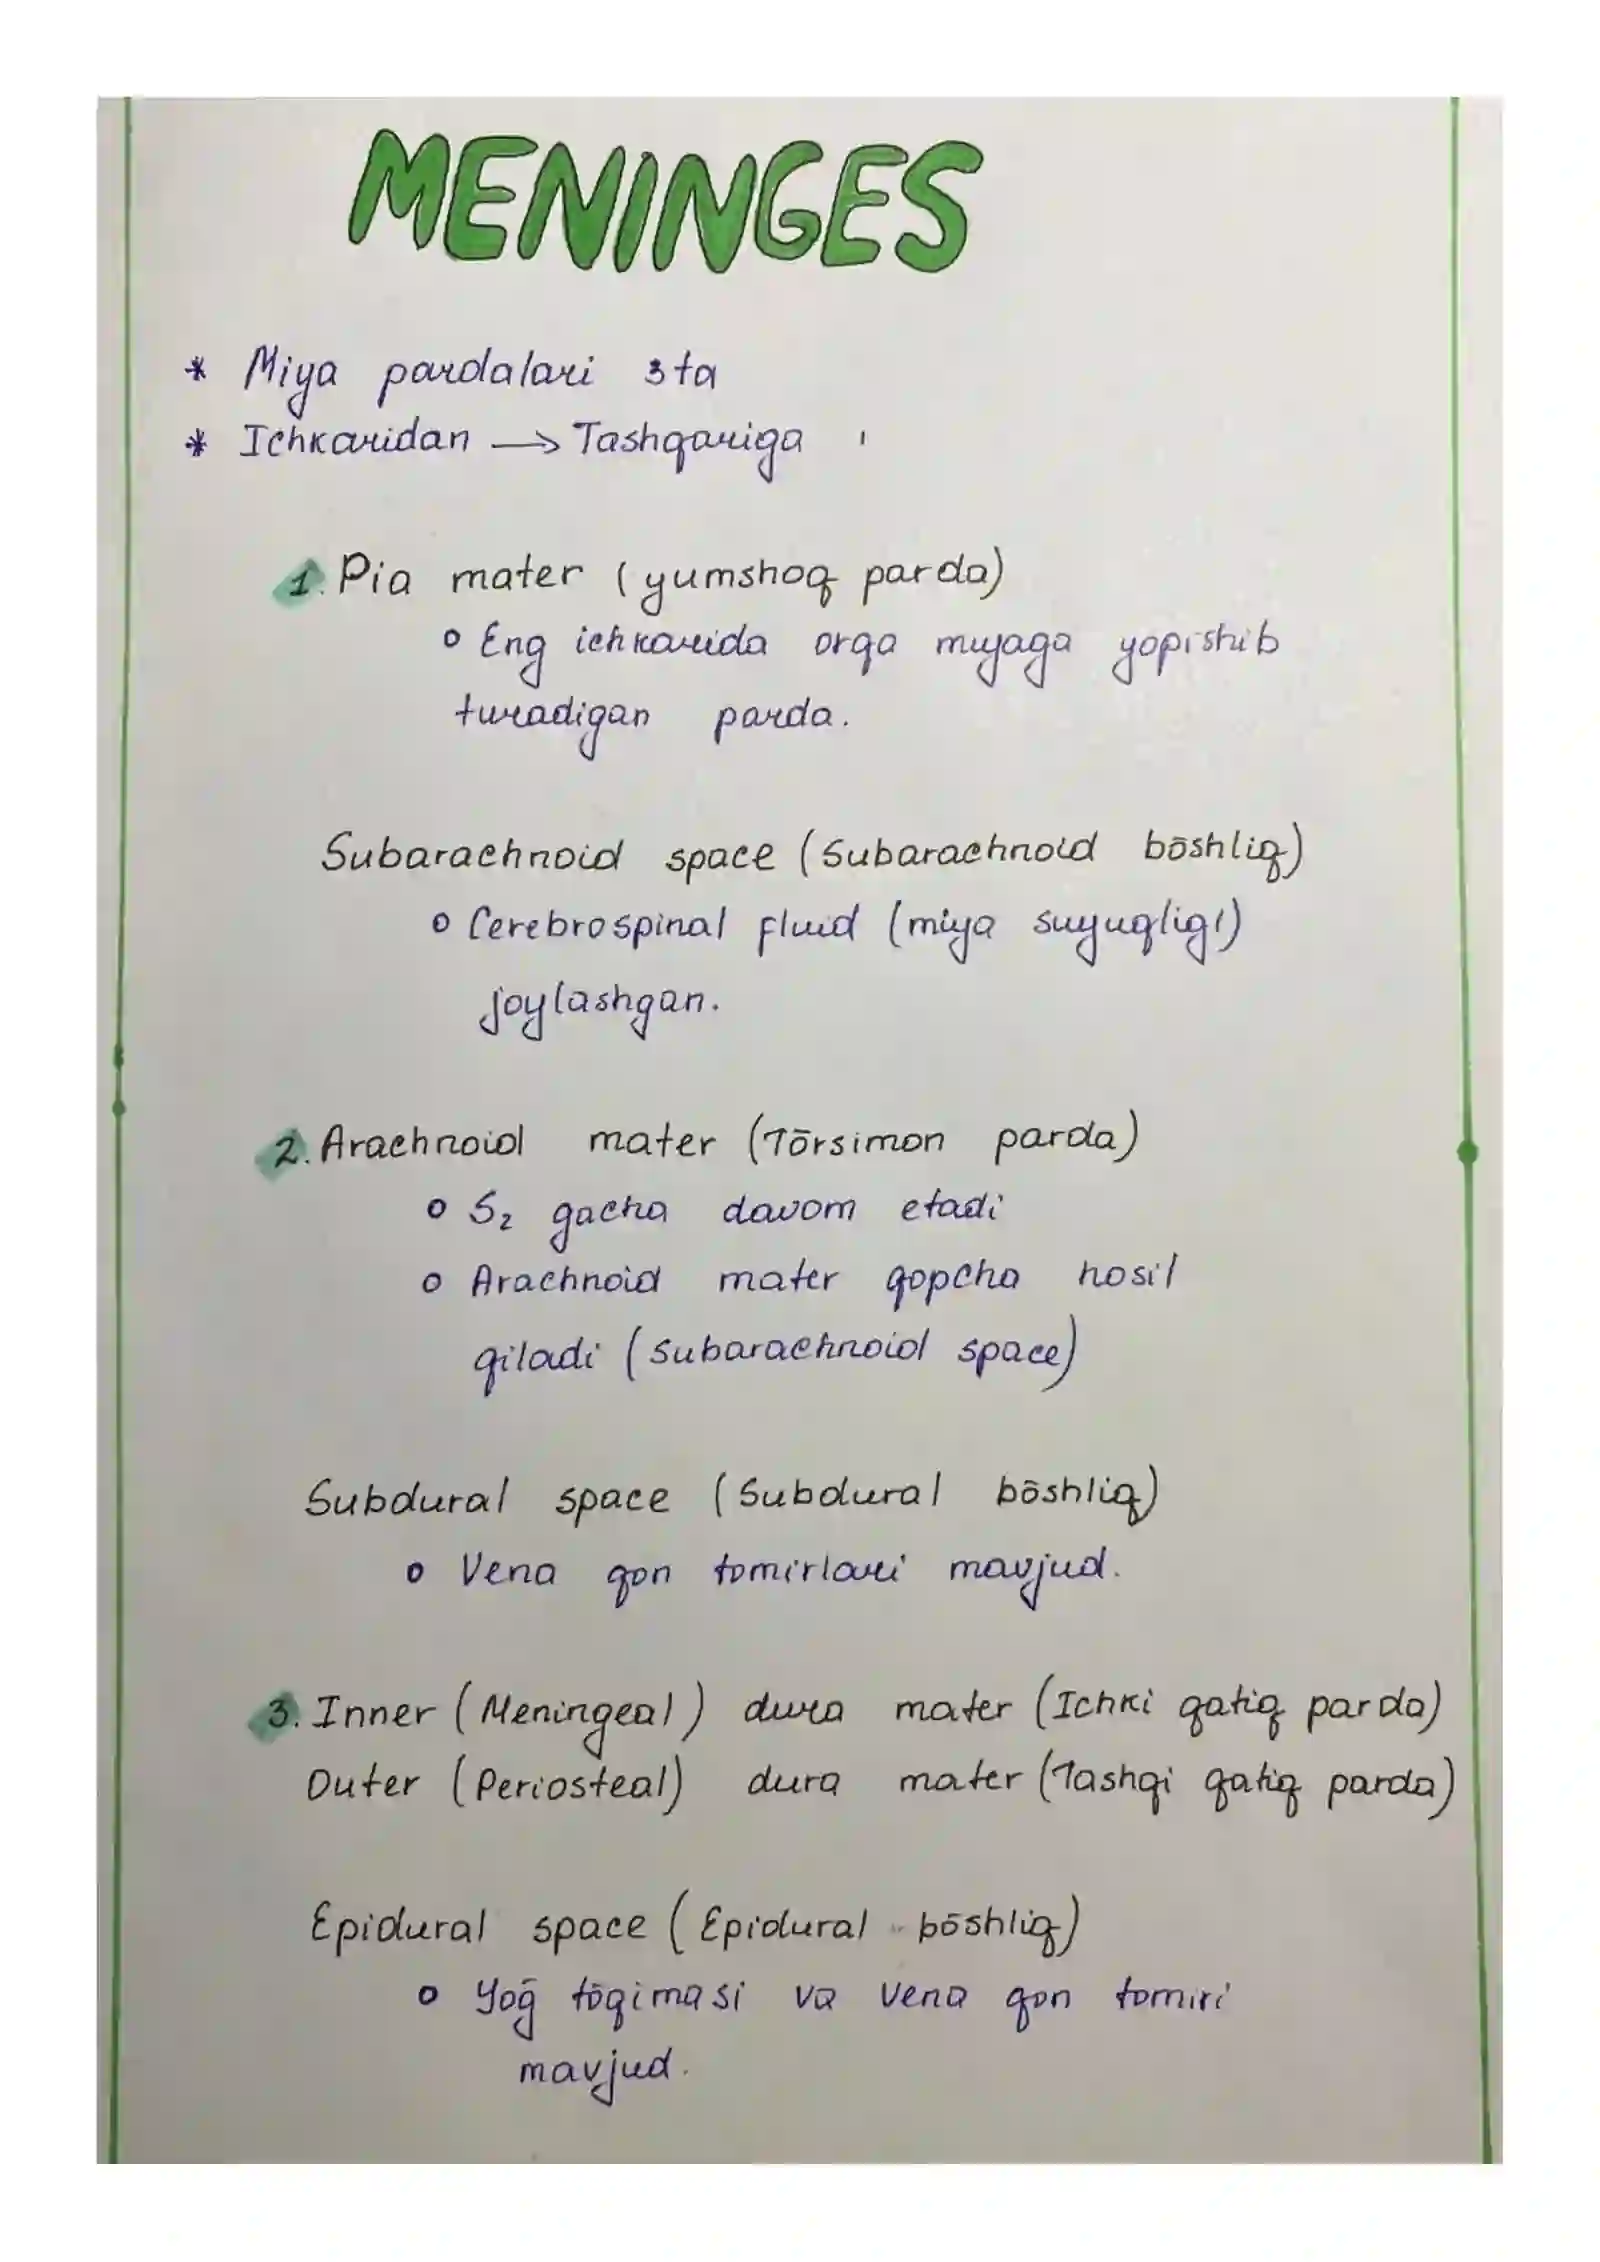 MENINGES
* Miya pardalari 3 ta
* Ichkaridan → Tashqariga
1. Pia mater (yumshoq parda)
o Eng ichkarida orqa miyaga yopishib
turadigan parda.
Subarachnoid space (Subarachnoid bōshliq)
o Cerebrospinal fluid (miya suyuqligi)
joylashgan.
2. Arachnoid mater (Tōrsimon parda)
o S₂ gacha davom etadi
o Arachnoid mater qopcha hosil
qiladi (Subarachnoid space)
Subdural space (Subdural bōshliq)
o Vena qon tomirlari mavjud.
3. Inner (Meningeal) dura mater (Ichki qatiq parda)
Outer (Periosteal) dura mater (Tashqi qatiq parda)
Epidural space (Epidural bōshliq)
o Yoḡ tōqimasi va vena qon tomiri
mavjud.